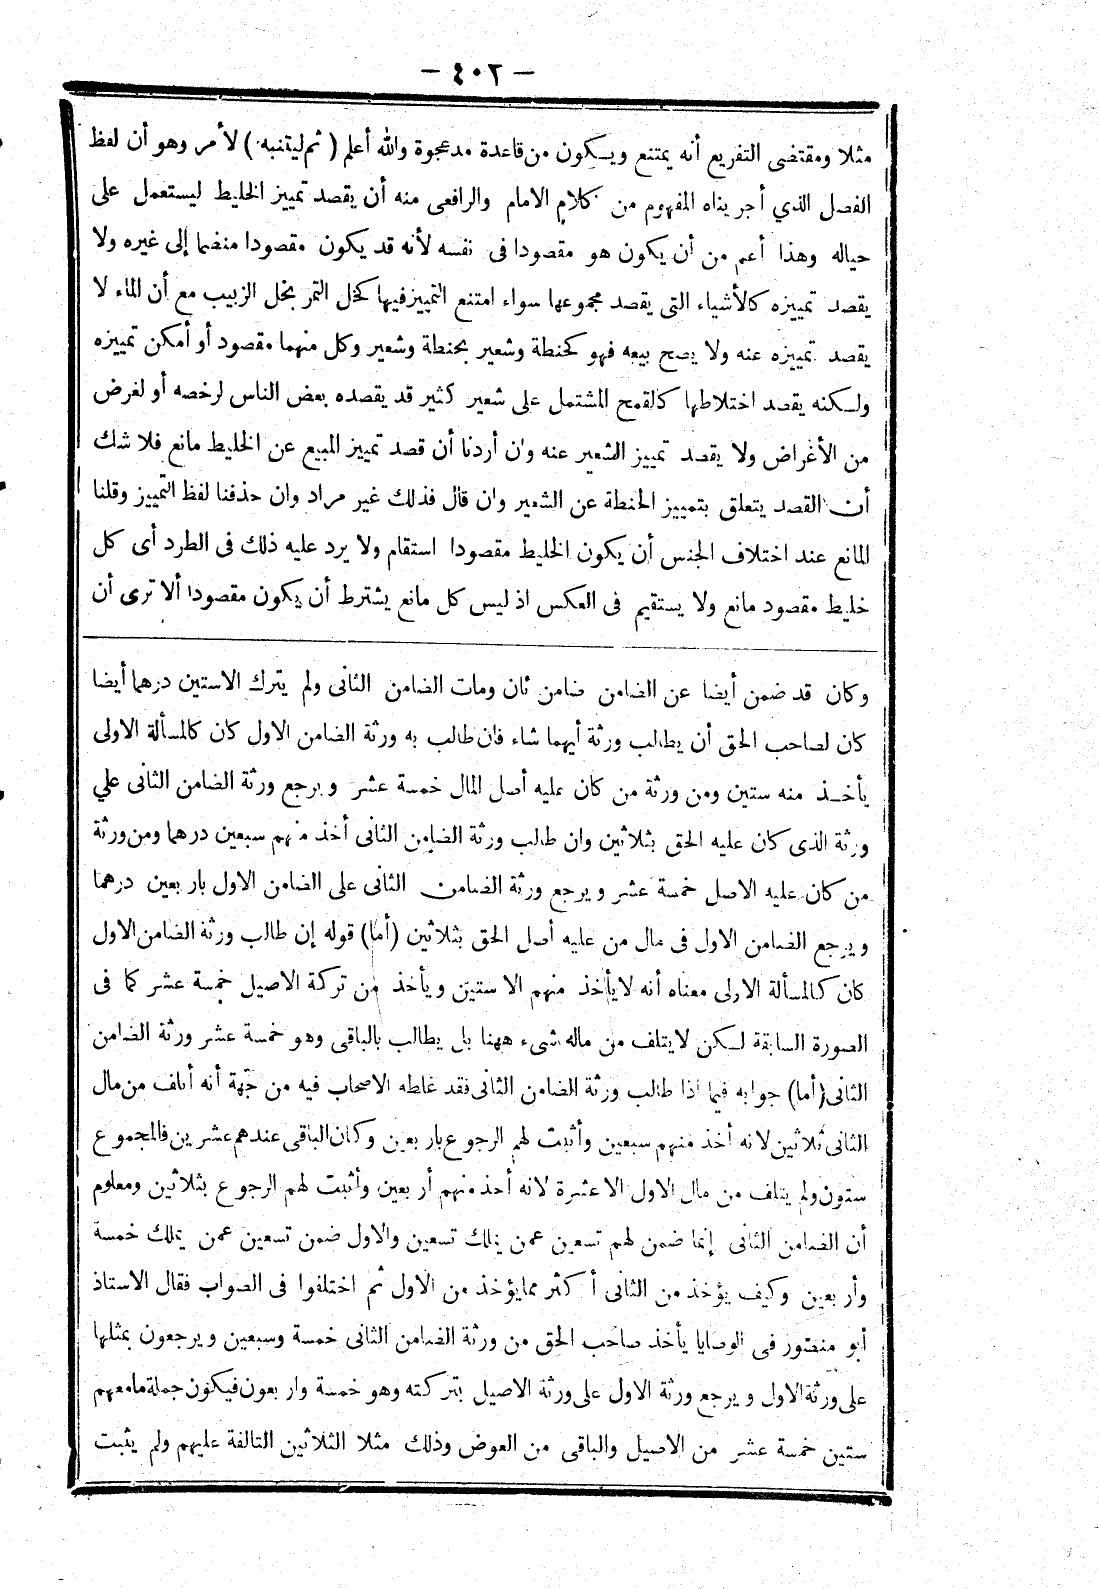 — ٤٠٢ —
مثلا ومقتضى التفريع أنه يمتنع ويكون من قاعدة مد عجوة والله أعلم ( ثم ليتنبه ) لأمر وهو أن لفظ
الفصل الذي أجريناه المفهوم من كلام الامام والرافعى منه أن يقصد تمييز الخليط ليستعمل على
حياله وهذا أعم من أن يكون هو مقصودا فى نفسه لأنه قد يكون مقصودا منضما إلى غيره ولا
يقصد تمييزه كالأشياء التى يقصد مجموعها سواء امتنع التمييز فيها كخل التمر بخل الزبيب مع أن الماء لا
يقصد تمييزه عنه ولا يصح بيعه فهو كحنطة وشعير بحنطة وشعير وكل منهما مقصود أو أمكن تمييزه
ولكنه يقصد اختلاطها كالقمح المشتمل على شعير كثير قد يقصده بعض الناس لرخصه أو لغرض
من الأغراض ولا يقصد تمييز الشعير عنه وان أردنا أن قصد تمييز المبيع عن الخليط مانع فلا شك
أن القصد يتعلق بتمييز الحنطة عن الشعير وان قال فذلك غير مراد وان حذفنا لفظ التمييز وقلنا
المانع عند اختلاف الجنس أن يكون الخليط مقصودا استقام ولا يرد عليه ذلك فى الطرد أى كل
خليط مقصود مانع ولا يستقيم فى العكس اذ ليس كل مانع يشترط أن يكون مقصودا ألا ترى أن
وكان قد ضمن أيضا عن الضامن ضامن ثان ومات الضامن الثانى ولم يترك الاستين درهما أيضا
كان لصاحب الحق أن يطالب ورثة أيهما شاء فان طالب به ورثة الضامن الاول كان كالمسألة الاولى
يأخذ منه ستين ومن ورثة من كان عليه أصل المال خمسة عشر ويرجع ورثة الضامن الثانى علي
ورثة الذى كان عليه الحق بثلاثين وان طالب ورثة الضامن الثانى أخذ منهم سبعين درهما ومن ورثة
من كان عليه الاصل خمسة عشر ويرجع ورثة الضامن الثانى على الضامن الاول باربعين درهما
ويرجع الضامن الاول فى مال من عليه أصل الحق بثلاثين (أما) قوله إن طالب ورثة الضامن الاول
كان كالمسألة الاولى معناه أنه لا يأخذ منهم الا ستين ويأخذ من تركة الاصيل خمسة عشر كما فى
الصورة السابقة لكن لا يتلف من ماله شىء ههنا بل يطالب بالباقى وهو خمسة عشر ورثة الضامن
الثانى (أما) جوابه فيما اذا طالب ورثة الضامن الثانى فقد غلطه الاصحاب فيه من جهة أنه أتلف من مال
الثانى ثلاثين لانه أخذ منهم سبعين وأثبت لهم الرجوع باربعين وكان الباقى عندهم عشرين فالمجموع
ستون ولم يتلف من مال الاول الا عشرة لانه أخذ منهم أربعين وأثبت لهم الرجوع بثلاثين ومعلوم
أن الضامن الثانى إنما ضمن لهم تسعين عمن يملك تسعين والاول ضمن تسعين عمن يملك خمسة
وأربعين وكيف يؤخذ من الثانى أكثر مما يؤخذ من الاول ثم اختلفوا فى الصواب فقال الاستاذ
أبو منصور فى الوصايا يأخذ صاحب الحق من ورثة الضامن الثانى خمسة وسبعين ويرجعون بمثلها
على ورثة الاول ويرجع ورثة الاول على ورثة الاصيل بتركته وهو خمسة واربعون فيكون جملة ما معهم
ستين خمسة عشر من الاصيل والباقى من العوض وذلك مثلا الثلاثين التالفة عليهم ولم يثبت